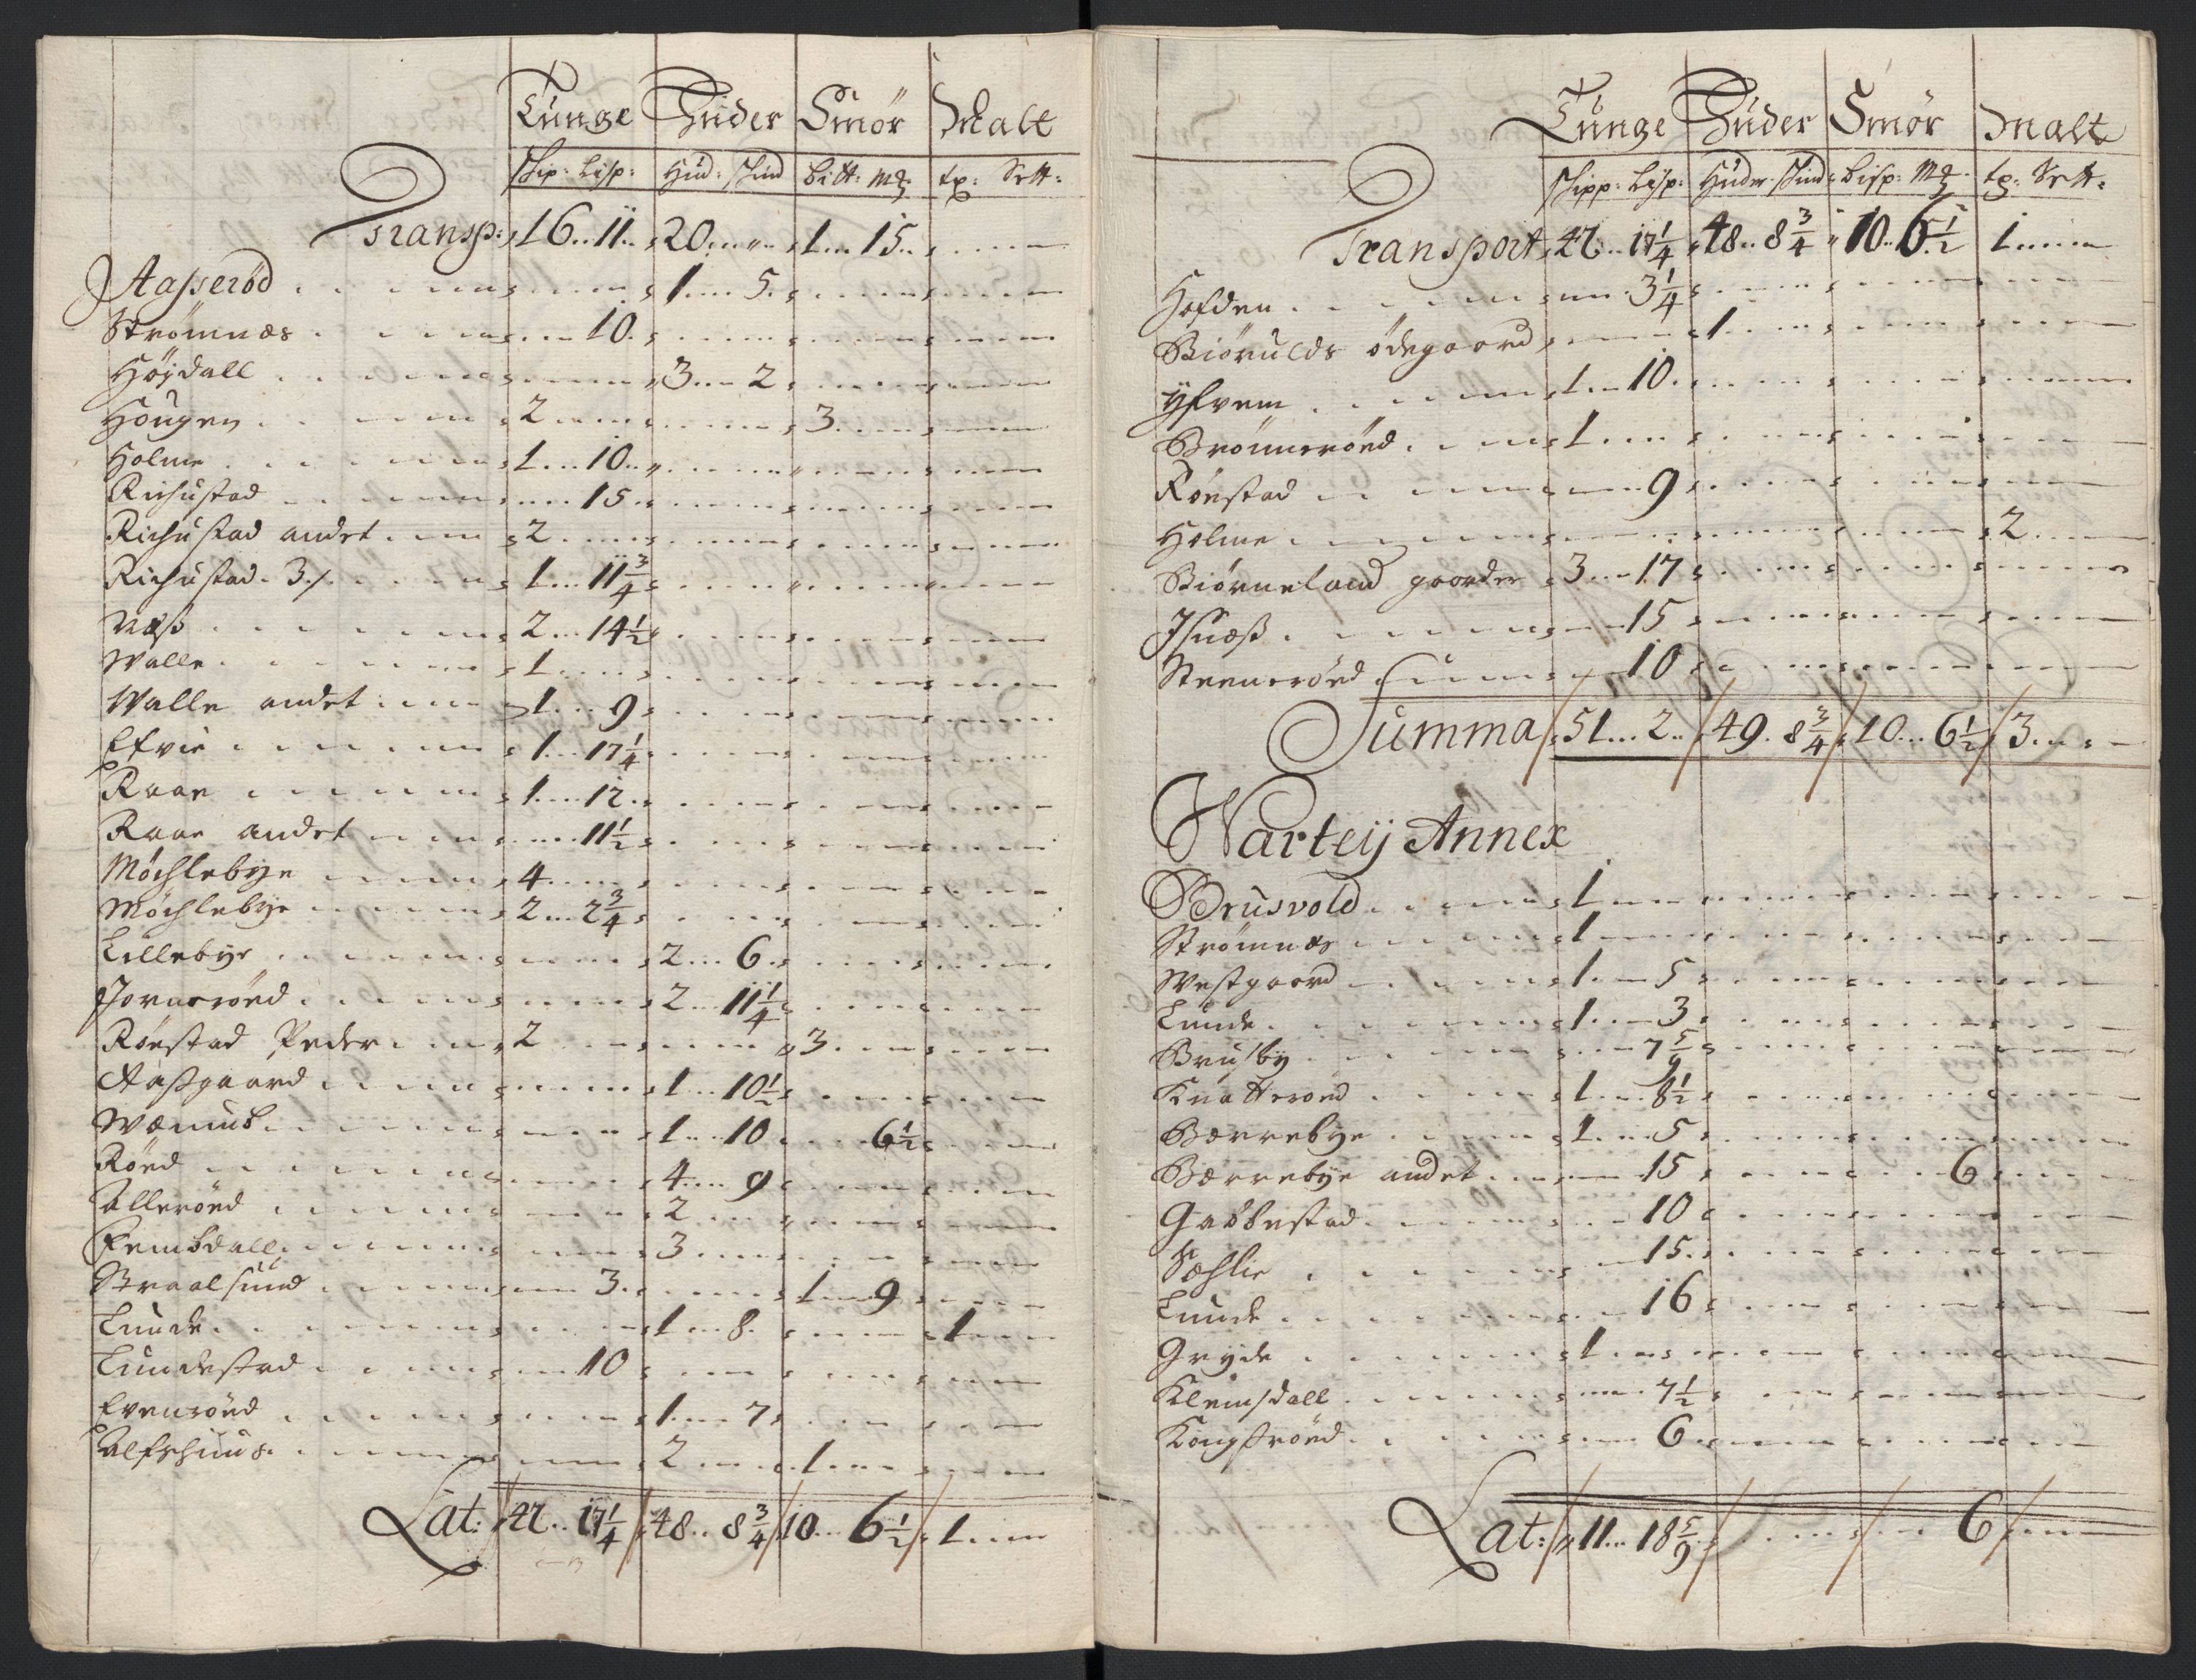 Tunge Huder Smör Malt
Skip: Lisp: Hud: Skind bitt: M𝔩: tp: Sett:
Transp: 16.. 11.. 20.. " .. 1... 15..
Aasseröd 1... 5.
Strömnæs 10.
Höijdall 3... 2
Hougen 2 3
Holme 1... 10..
Richustad 15
Richustad andet 2
Richustad. 3. 1... 11 3/4
Næss 2... 14 1/2
Walle 1
Walle andet 1... 9
Efvie 1... 17 1/4
Raae 1... 12
Raae andet 11 1/2
Möchlebye 4
Möchlebye 2... 2 3/4
Lillebye 2... 6
Jorneröed 2... 11 1/4
Röestad Peder 2 3
Aassgaard 1... 10 1/2
Wæmub 1... 10 6 1/2
Röed 4... 9
Alleröed 2
Fembdall 3
Straalsund 3. 1... 9
Lunde 1... 8. 1
Lundestad 10
Evenröed 1... 7
Alfshuus 2 1
Lat: 42.. 17 1/4 48.. 8 3/4 10... 6 1/2 1
Tunge Huder Smör Malt
Skipp: Lisp: Huder Skind Lisp: M𝔩: tp: Sett:
Transport 42.. 17 1/4 48.. 8 3/4 10.. 6 1/2 1
Hofden 3 1/4
Biörulds ödegaard 1
Yfrem 1... 10.
Brönneröed 1
Röestad 9
Holme 2
Biörneland gaarder 3... 17
Isnæss 15
Steneröed 10
Summa 51... 2.. 49. 8 3/4 10... 6 1/2 3.
Warteij Annex
Brusvold 1
Strömnæs 1
Westgaard 1... 5
Lunde 1... 3
Brusby 7 5/9
Knatteroed 1... 8 1/2
Bærrebye 1... 5
Bærrebye andet 15 6
Gabbestad 10
Sæhlie 15.
Lunde 16
Gryde 1
Klemsdall 7 1/2
Kongsröed 6
Lat: 11... 18 5/9 6